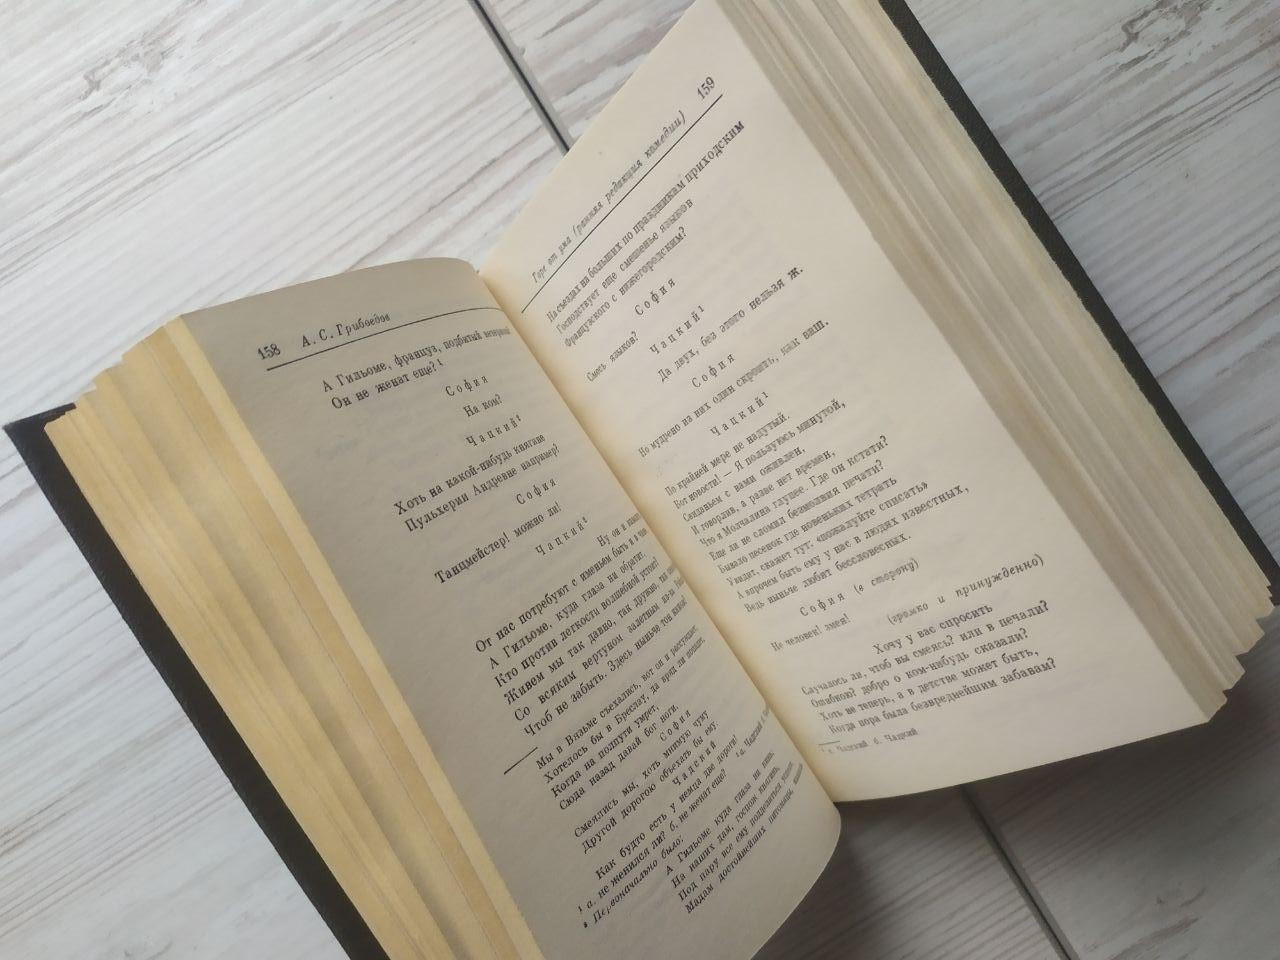 158 А. С. Грибоедов
А Гильоме, француз, подбитый ветерком?
Он не женат еще? ¹
София
На ком?
Чацкий ²
Хоть на какой-нибудь княгине
Пульхерии Андревне например?
София
Танцмейстер! можно ли!
Чацкий ³
Ну он и
От нас потребуют с именьем быть и в
А Гильоме, куда глаза на обратит,
Кто против легкости волшебной устоит!
Живем мы так давно, так дружно,
Со всяким вертуном залетным из-за
Чтоб не забыть. Здесь нынче тон каков!
Мы в Вязьме съехались, вот он и рассуждает,
Хотелось бы в Бреслау, да вряд ли
Когда на полпути умрет,
Сюда назад давай бог ноги,
София
Смеялись мы, хоть мнимую чуму
Другой дорогою объехать бы ему.
Чадский
Как будто есть у немца две дороги!
¹ а. не женился ли? б. не женат еще? ² а. Чадский б.
³ Первоначально было:
А Гильоме куда глаза на
На наших дам, господ, княгинь,
Под пару все ему
Мадам достойнейших питомиц,
Горе от ума (ранняя редакция комедии) 159
На съездах на больших по праздникам приходским
Господствует еще смешенье языков
Французского с нижегородским?
София
Смесь языков?
Чацкий ¹
Да двух, без этого нельзя ж.
София
Но мудрено из них один скроить, как ваш.
Чацкий ¹
По крайней мере не надутый.
Вот новости! — Я пользуюсь минутой,
Свиданьем с вами оживлен,
И говорлив, а разве нет времен,
Что я Молчалина глупее. Где он кстати?
Еще ли не сломил безмолвия печати?
Бывало песенок где новеньких тетрадь
Увидит, скажет тут: «пожалуйте списать»
А впрочем быть ему у нас в людях известных,
Ведь нынче любят бессловесных.
София (в сторону)
Не человек! змея! (громко и принужденно)
Хочу у вас спросить
Случалось ли, чтоб вы смеясь? или в печали?
Ошибкою? добро о ком-нибудь сказали?
Хоть не теперь, а в детстве может быть,
Когда пора была безвреднейшим забавам?
¹ а. Чадский б. Чацкий